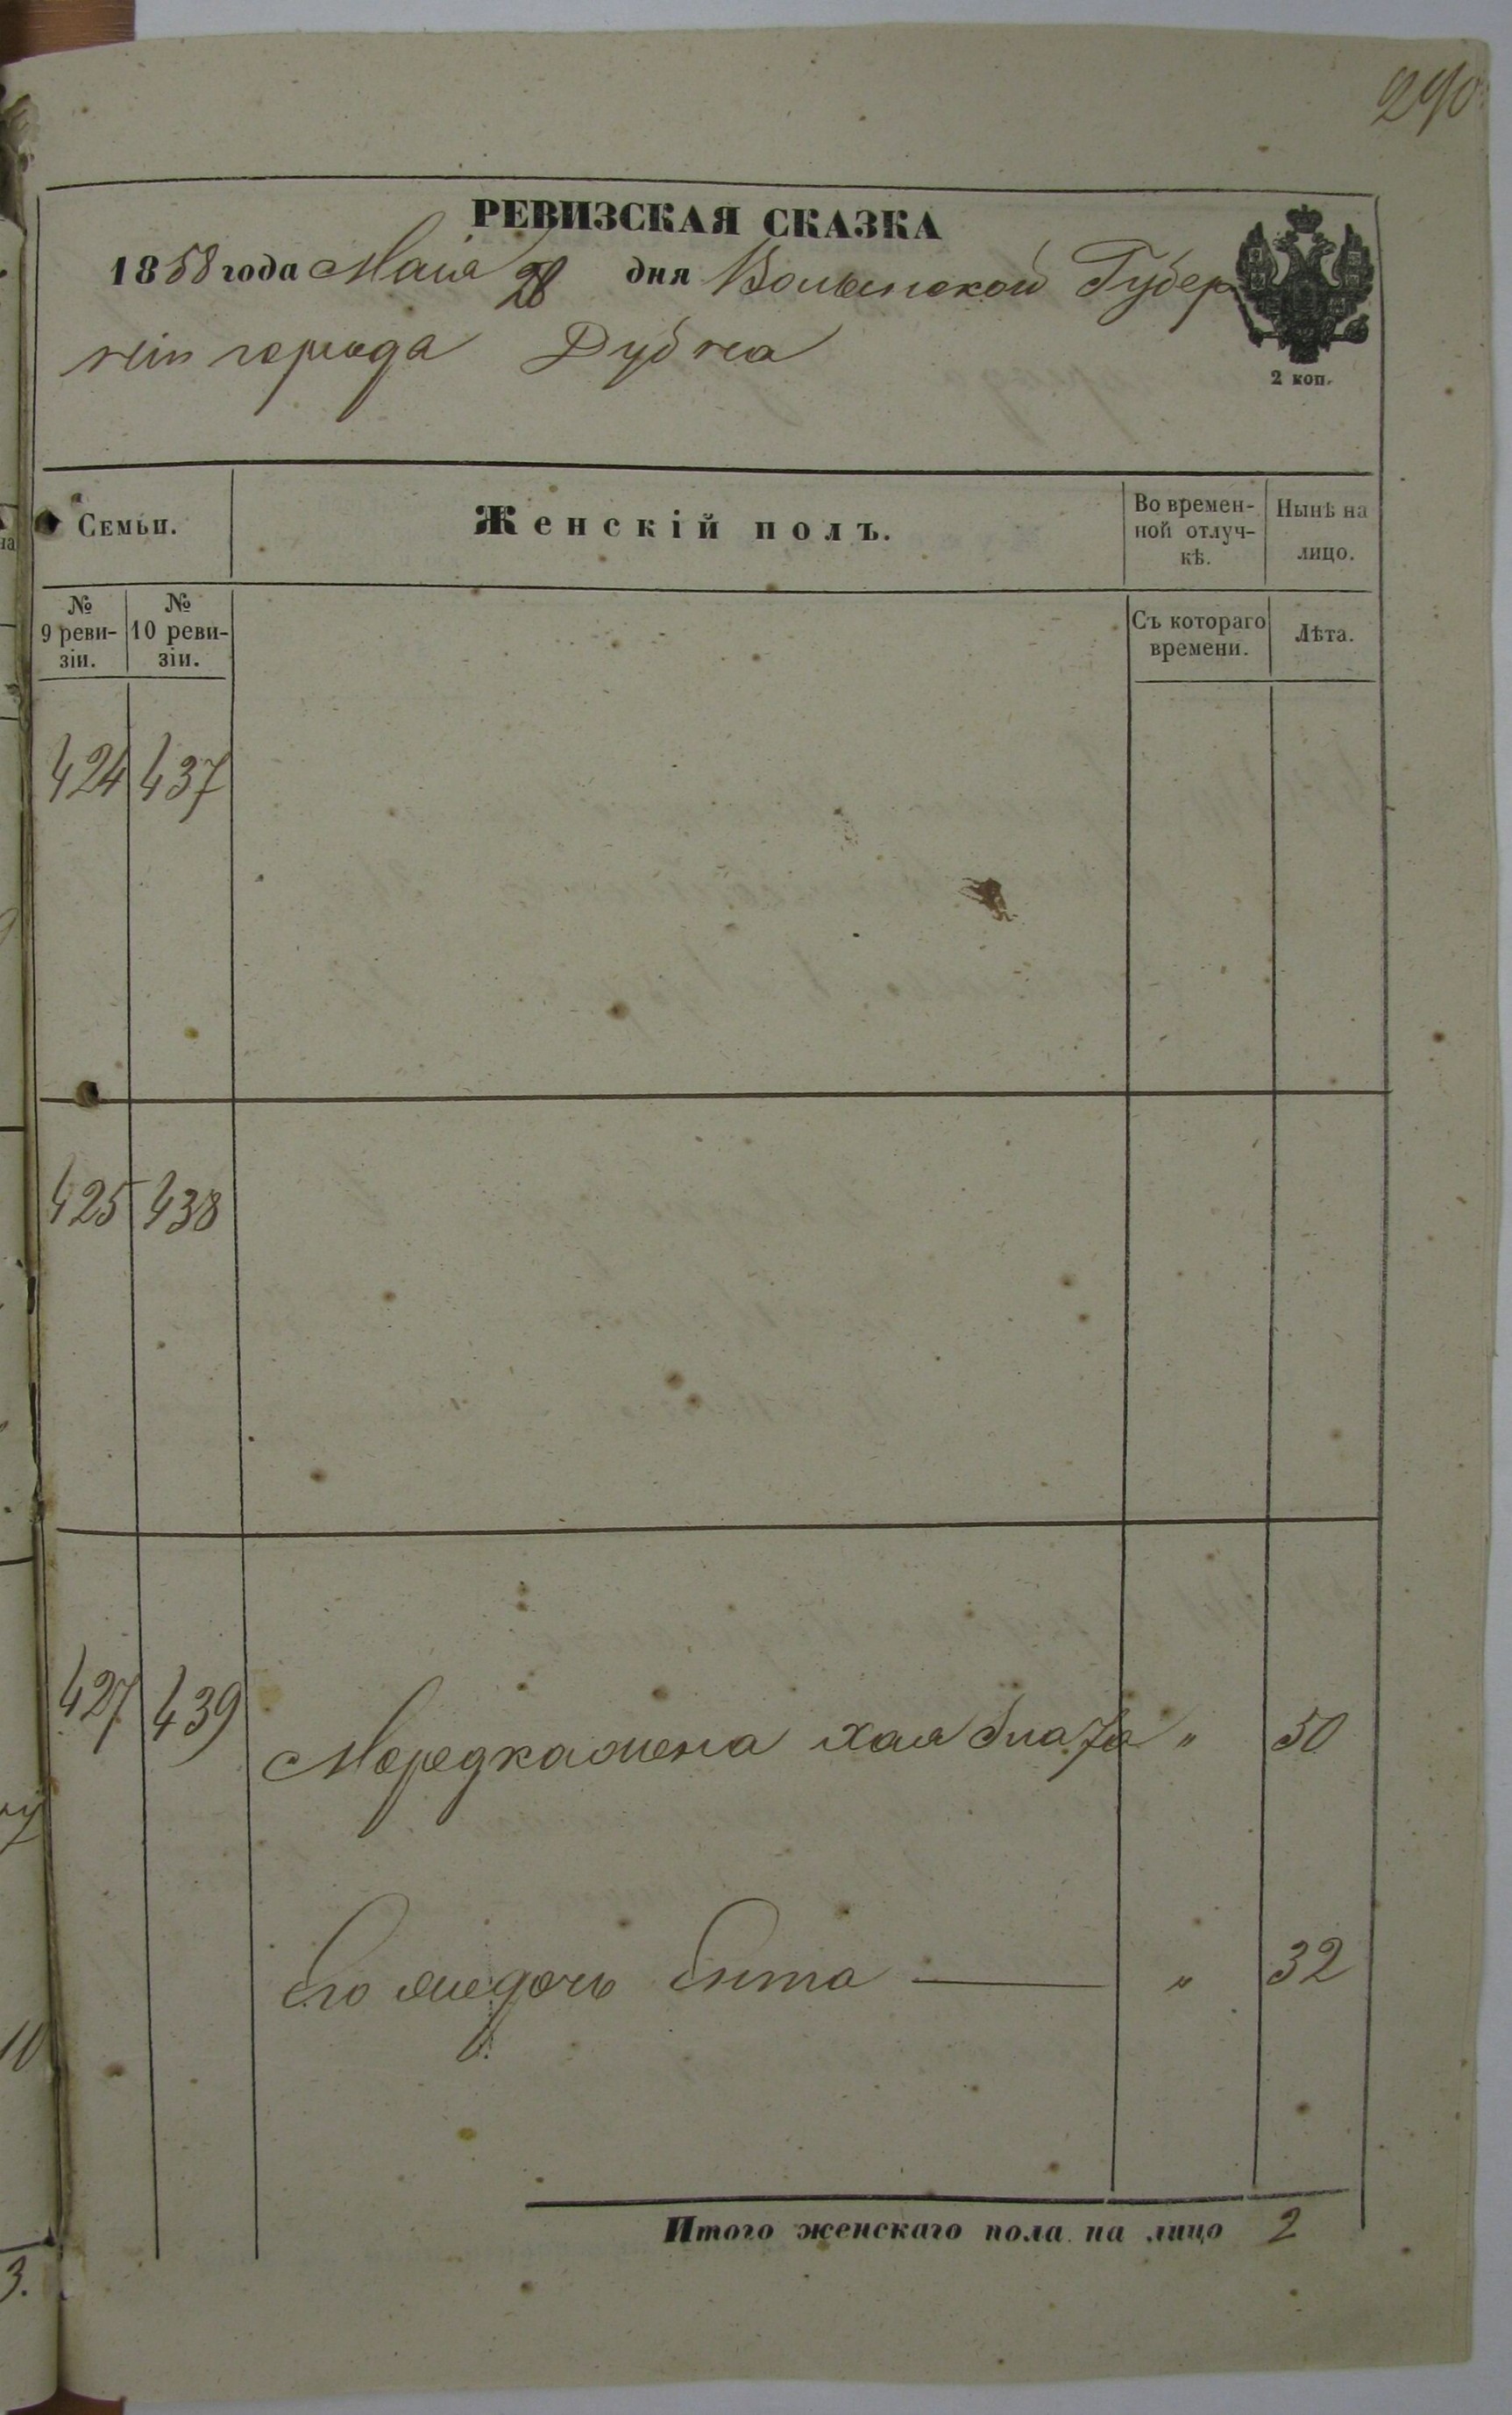 290
РЕВИЗСКАЯ СКАЗКА
1858 года Маія 28 дня Волынской Губер
ніи города Дубна
2 коп.
Семьи.
Женскій полъ.
Во времен-
ной отлуч-
кѣ.
Нынѣ на
лицо.
№
9 реви-
зіи.
№
10 реви-
зіи.
Съ котораго
времени.
Лѣта.
424 437
425 438
427 439 жена Хая " 50
Его дочь Ента " 32
Итого женскаго пола на лицо 2